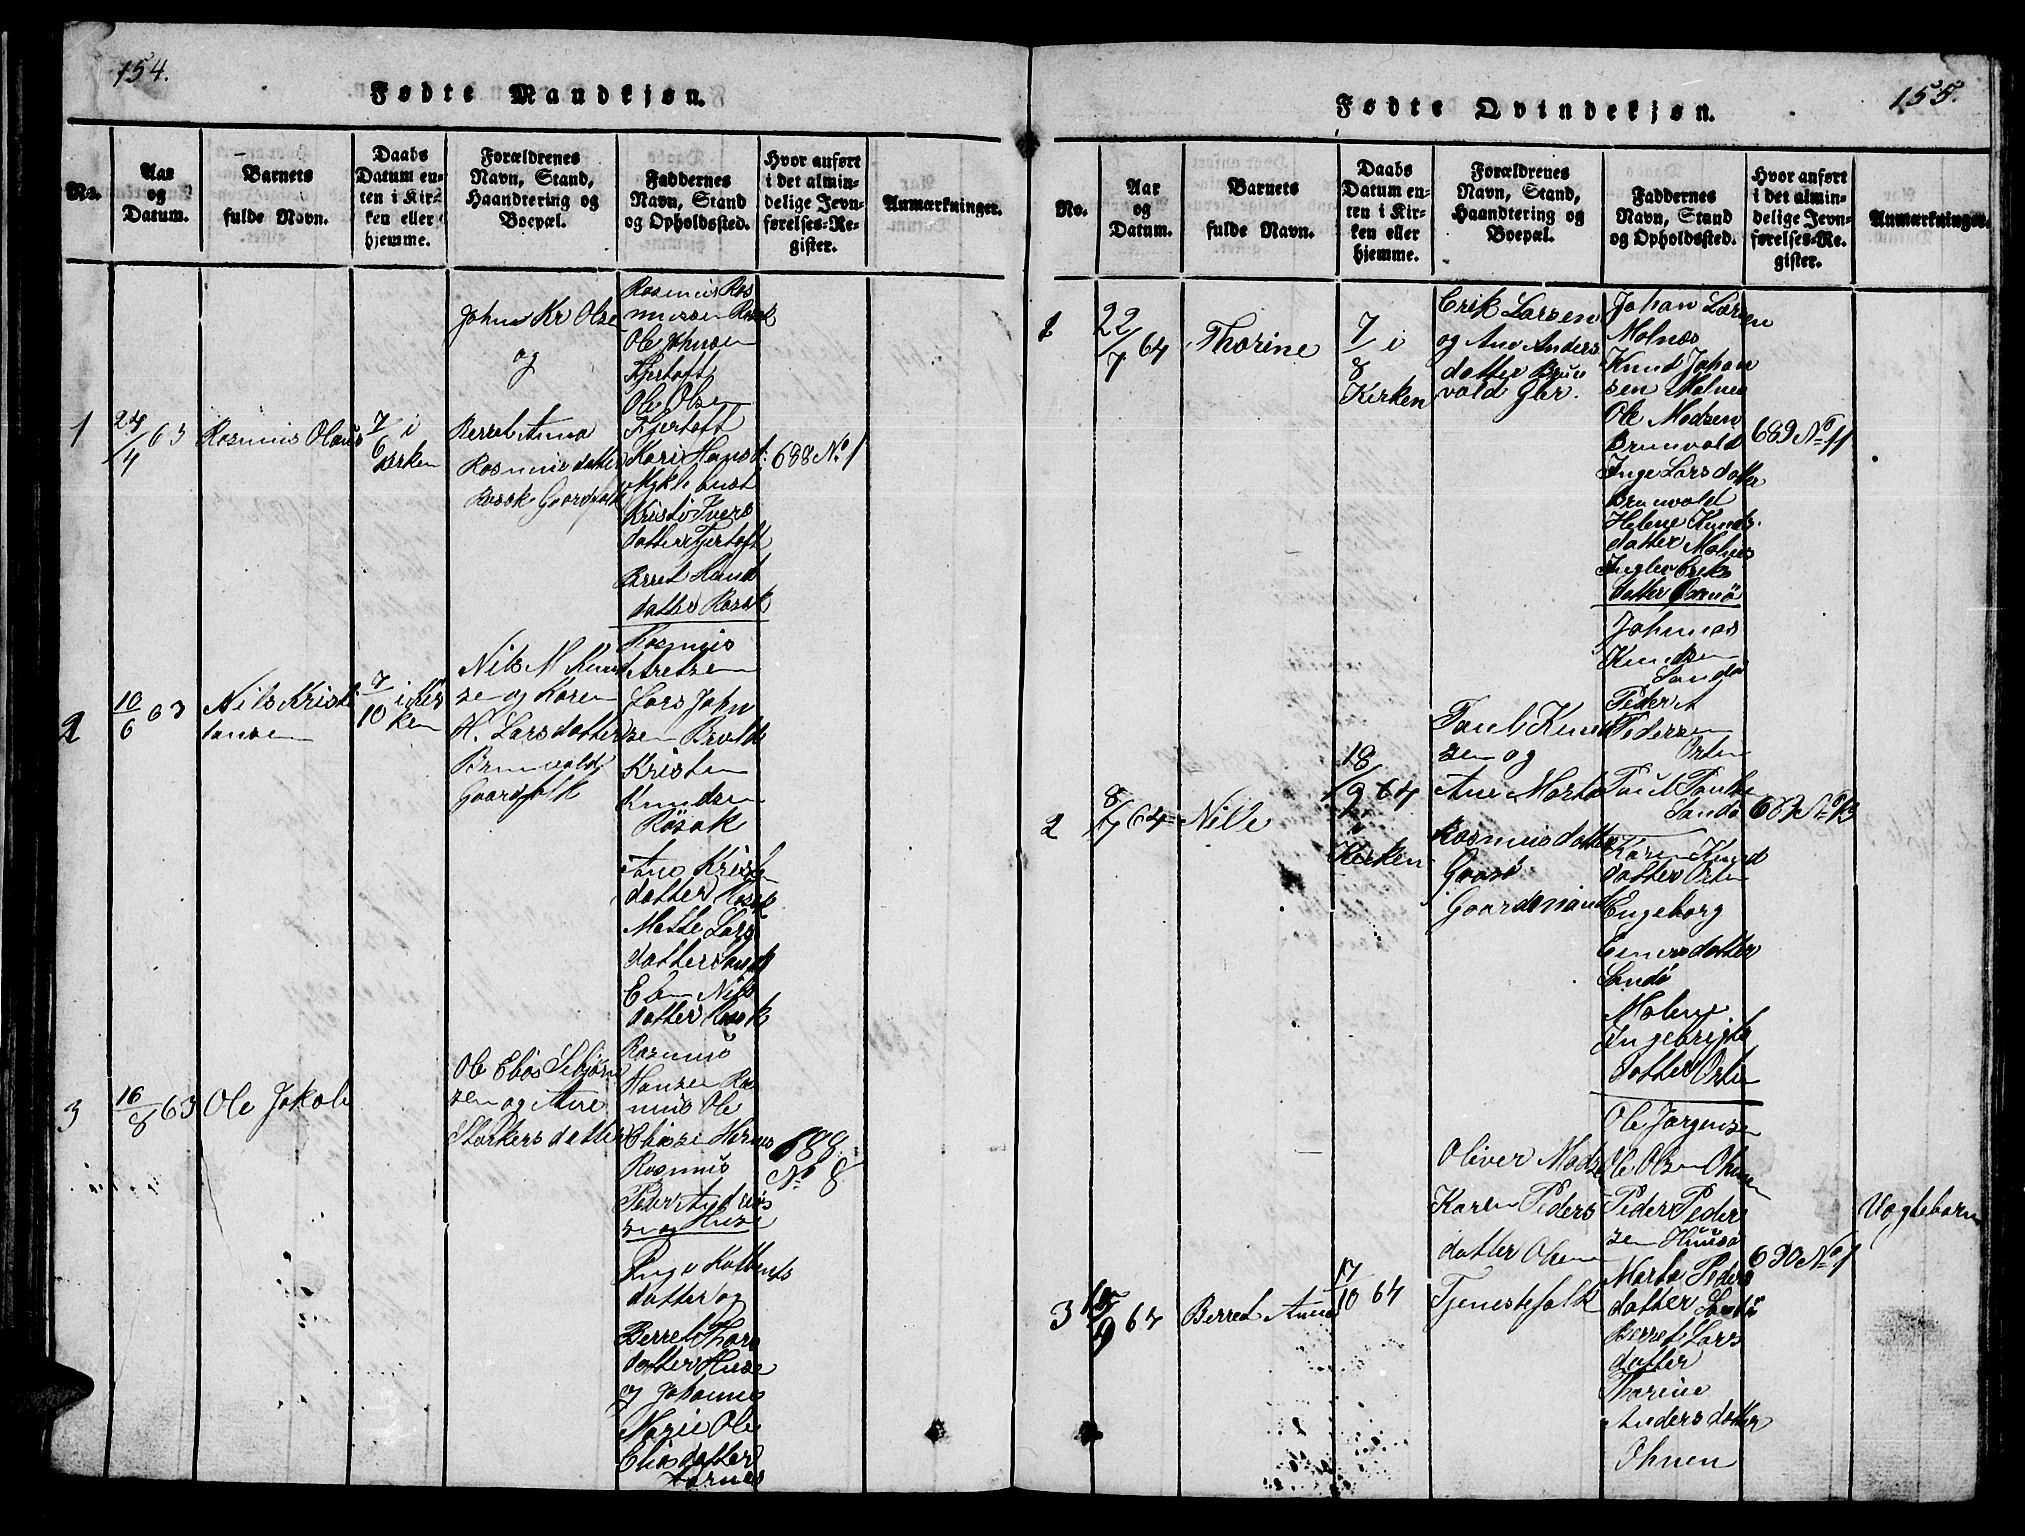 154.
Fødte Mandkjøn.
No.
Aar
og
Datum.
Barnets
fulde Navn.
Daabs
Datum en-
ten i Kir-
ken eller
hjemme.
Forældrenes
Navn, Stand,
Haandtering og
Boepæl.
Faddernes
Navn, Stand
og Opholdssted.
Hvor anført
i det almin-
delige Jevn-
førelses-Re-
gister.
Anmærkninger.
1
24/4 63
Rasmus Olaus
7/6 i
Kirken
John Kr Olse
og
Berret Anna
Rasmusdatter
Røsok Gaardfolk
Rasmus Ras
mussen Røsok
Ole Johnsen
Fjertoft
Ole Olsen
Fjertoft
Kari Hansd:
Myklebust
Kristi Ivers
datter Fjertoft
Berret Hans
datter Røsok
688 No 1
2
10/6 63
Nils Kristi
ansen
7/10 i Kir
ken
Nils M Knud
sen og Karen
H. Larsdatter
Brunvold
Gaardfolk
Rasmus
Aretsen
Lars John
sen
Kristen
Knudsen
Røsok
Ane Krist
datter Røsok
Mette Lars
datter
Nils
datter Røsok
3
16/8 63
Ole Jakob
Ole Elias
sen og Ane
Storkersdatter
Rasmus
Hansen Ras
mus Ole
Eliasen Harnes
Rasmus
Peter
sen og Huse
Inge
datter og
Berret Thore
datter Huse
og Johanne
Marie Ole
Eliasdatter
Harnes
688
No 8
155.
Fødte Qvindekjøn.
No.
Aar
og
Datum.
Barnets
fulde Navn.
Daabs
Datum en-
ten i Kir-
ken eller
hjemme.
Forældrenes
Navn, Stand,
Haandtering og
Boepæl.
Faddernes
Navn, Stand
og Opholdssted.
Hvor anført
i det almin-
delige Jevn-
førelses-Re-
gister.
Anmærkninger.
1
22/7 64
Thorine
7/8 i
Kirken
Erik Larsen
og Ane Anders
datter Brun
vold Gbr.
Johan Larsen
Molnes
Knud Johan
sen Molnes
Ole Madsen
Brunvold
Inge Larsdatter
Brunvold
Helene Knuds
datter Molnes
datter
689 No 11
2
8/7 64
Nille
18/9 64
i
Kirken
Paul Knud
sen og
Ane Marta
Rasmusdatter
Gaasø
Gaardmand
Johannes
Knudsen
Sandø
Peder
Pedersen
Orten
Paul
Sandø
Karen Knud
datter Orten
Engeborg
datter
Sandø
Ingebrigt
datter Orten
689 No 13
3
15/9 64
Berret Anne
17/10 64
Oliver Mads
Karen Peders
datter Ohnen
Tjenestefolk
Ole Jørgensen
Ole Olsen Ohnen
Peder Peder
sen Husø
Marta Peders
datter Sandø
Berret Lars
datter
Thorine
Andersdatter
Ohnen
690 No 1
Uægtebarn